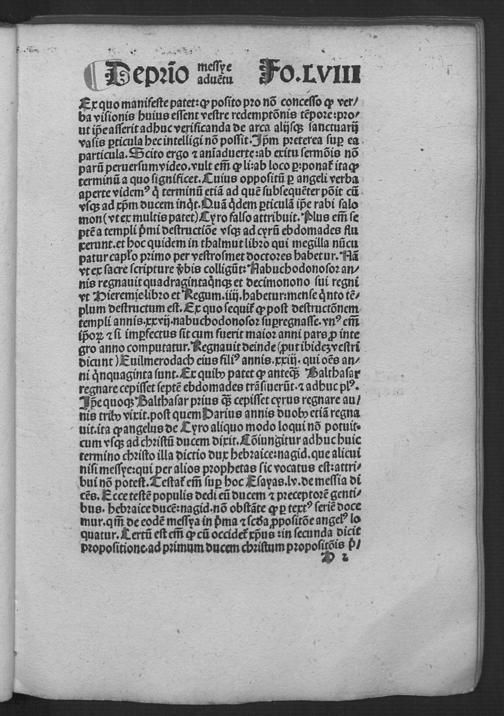 De prīo messye aduētu Fo.LVIII
Ex quo manifeste patet: ꝙ posito pro nō concesso ꝙ ver/
ba visionis huius essent vestre redemptōnis tēpore: pro/
ut ipse asserit adhuc verificanda de arca alijsꝗ sanctuarij
vasis ꝑticula hec intelligi nō possit. Ipm̄ preterea sup ea
particula. Scito ergo et aniaduerte: ab exitu sermōis nō
parū peruersum video. vult em̄ ꝙ li: ab loco ꝑ: ponat̄ ita ꝙ
terminū a quo significet. Cuius oppositū ꝑ angeli verba
aperte videmꝰ q̄ terminū etiā ad quē subsequēter pōit cū
vsꝗ ad xp̄m ducem inq̄t. Qua q̄dem ꝑticula ip̄e rabi salo
mon (vt ex multis patet) Cyro falso attribuit. Plus em̄ se
ptē a templi p̄mi destructiōe vsꝗ ad cyrū ebdomades flu
xerunt. et hoc quidem in thalmut libro qui megilla nūcu
patur cap̄lo primo per vestros met doctores habetur. Nā
vt ex sacre scripture v̄bis colligūt: Nabuchodonosor an/
nis regnauit quadraginta qn̄ꝗ et decimonono sui regni
vt Hieremie libro et Regum.iiij. habetur: mense q̄nto tē/
plum destructum est. Ex quo sequit̄ ꝙ post destructōnem
templi annis.xxvij. nabuchodonosor suꝑregnasse. vnꝰ em̄
ip̄oꝝ et si imperfectus sit cum fuerit maior anni pars ꝓ inte
gro anno computatur. Regnauit deinde (put ibidē vestri
dicunt) Euilmerodach eius filiꝰ annis.xxiij. qui oēs an/
ni q̄nquaginta sunt. Ex quibꝰ patet ꝙ anteꝗ̄ Balthasar
regnare cepisset septē ebdomades trāsiuerūt. et adhuc plꝰ.
Ip̄e quoꝗ Balthasar prius ꝗ̄ cepisset cyrus regnare an/
nis tribꝰ vixit. post quem Darius annis duobꝰ etiā regna
uit. ita ꝙ angelus de Cyro aliquo modo loqui nō potuit:
cum vsꝗ ad christū ducem dixit. Cōiungitur adhuc huic
termino christo illa dictio dux hebraice: nagid. que alicui
nisi messye: qui per alios prophetas sic vocatus est: attri/
bui nō potest. Testat̄ em̄ sup hoc Esayas.lv. de messia di
cēs. Ecce testē populis dedi eū ducem et preceptorē genti/
bus. hebraice ducē: nagid. nō obstāte ꝙ ꝑ textꝰ seriē doce
mur. qm̄ de eodē messya in p̄ma et scd̄a ꝓpositōe angelꝰ lo
quatur. Certū est em̄ ꝙ cū occidet̄ xp̄us: in secunda dicit
propositione. ad primum ducem christum propositōis p̄/
D 2